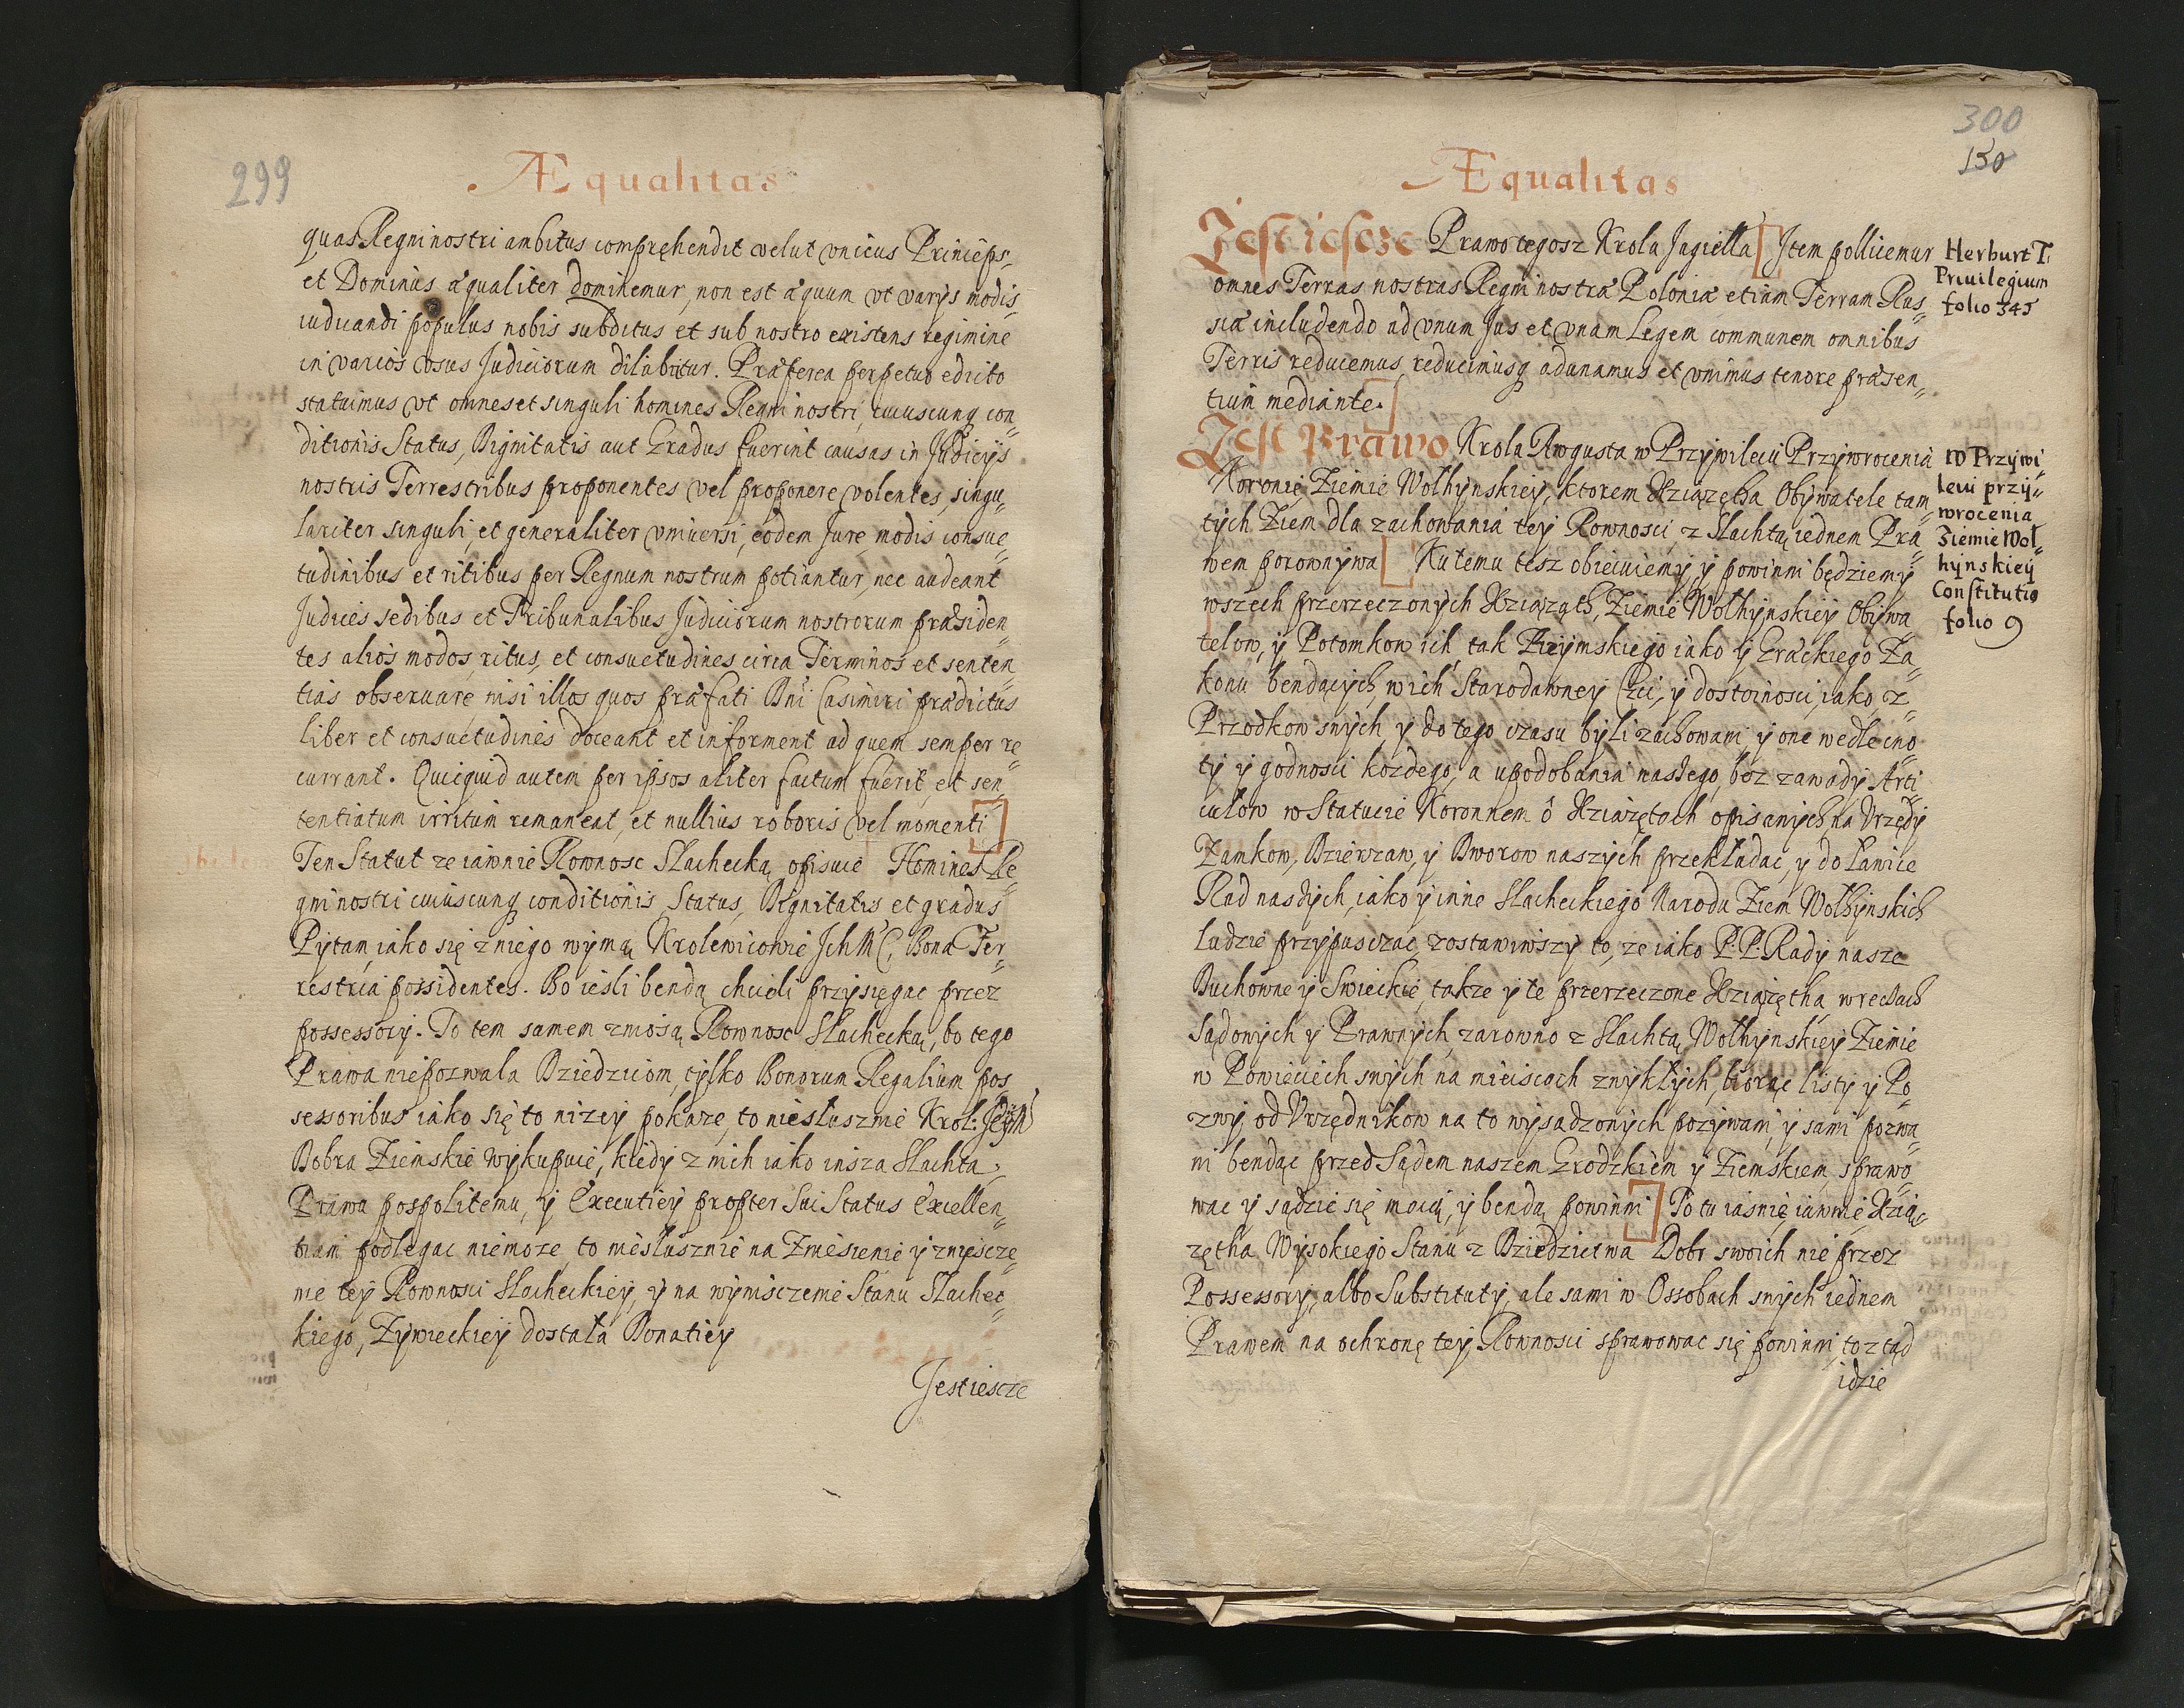 299
Æqualitas
quas Regni nostri ambitus comprehendit velut vnicus Princeps
et Dominus æqualiter dominemur, non est æquum vt varys modis
iudicandi populus nobis subditus et sub nostro existens regimine
in varios vsus Judiciorum dilabitur. Præterea perpetuo edicto
statuimus vt omnes et singuli homines Regni nostri, cuiuscunq con„
ditionis Status, Dignitatis aut Gradus fuerint causas in Judicys
nostris Terrestribus proponentes vel proponere volentes, singu„
lariter singuli, et generaliter vniuersi, eodem Jure modis consue„
tudinibus et ritibus per Regnum nostrum potiantur, nec audeant
Judices sedibus et Tribunalibus Judiciorum nostrorum præsiden„
tes alios modos, ritus, et consuetudines circa Terminos et senten„
tias obseruare nisi illos quos præfati Dni Casimiri prædictus
liber et consuetudines doceant et informent ad quem semper re„
currant. Quicquid autem per ipsos aliter factum fuerit, et sen„
tentiatum irritum remaneat, et nullius roboris vel momenti]
Ten Statut ze iawnie Rownosc Slachecką opisuie Homines Re„
gni nostri cuiuscunq conditionis, Status, Dignitatis et gradus
Pytam, iako się z niego wymą Krolewicowie Jch M C, Bona Ter„
restria possidentes. Bo iesli bendą chcieli przysięgac przez
possessory. To tem samem zniosą Rownosc Slachecką, bo tego
Prawa niepozwala Dziedziom, tylko Bonorum Regalium pos
sessoribus iako się to nizey pokaze, to niesłusznie Krol: JeyM
Dobra Ziemskie wykupuie, kiedy z nich iako insza Slachta
Prawu pospolitemu, y Executiey propter Sui Status Excellen„
tiam podlegac niemoze to niesłusznie na Zniesienie y zniscze„
nie tey Rownosci Slacheckiey, y na wynisczenie Stanu Slachec„
kiego, Zywieckiey dostała Donatiey
Jest iescze
300
150
Æqualitas
Jest iescze Prawo tegosz Krola Jagiella [ Jtem pollicemur
omnes Terras nostras Regni nostri Poloniæ etiam Terram Rus„
siæ includendo ad vnum Jus et vnam Legem communem omnibus
Terris reducemus, reducimusq adunamus et vnimus tenore præsen„
tium mediante.]
Herburt T.
Priuilegium
folio 345
Jest Prawo Krola Awgusta w Przywileiu Przywrocenia
Koronie Ziemie Wolhynskiey, ktorem Xziązętha Obywatele tam„
tych Ziem dla zachowania tey Rownosci z Slachtą iednem Pra„
wem porownywa [ Ku temu tesz obiecuiemy, y powinni będziemy
wszech przerzeczonych Xziąząth, Ziemie Wolhynskiey Obywa
telow, y Potomkow ich tak Rzymskiego iako y Grackiego Za„
konu bendących w ich Starodawney Czci, y dostoinosci, iako z
Przodkow swych y do tego czasu byli zachowani, y one wedle cno
ty y godnosci kozdego, a upodobania naszego, bez zawady Arti„
culow w Statucie Koronnem ô Xziązętach opisanych, na Vrzędy
Zamkow, Dzierzaw, y Dworow naszych przekładac, y do Lawice
Rad naszych, iako y inne Slacheckiego Narodu Ziem Wolhynskich
ludzie przypusczac zostawiwszy to, ze iako P.P. Rady nasze
Duchowne y Swieckie, takze y te przerzeczone Xziązętha wrechach
Sądowych y Prawnych zarowno z Slachtą Wolhynskiey Ziemie
w Powieciech swych na mieiscach zwykłych, biorąc listy y Po„
zwy od Vrzędnikow na to wysadzonych pozywani, y sami pozwa„
ni bendąc przed Sądem naszem Grodzkiem y Ziemskiem, sprawo„
wac y sądzic się maią, y bendą powinni] To tu iasnie iawnie Xzią„
zętha Wysokiego Stanu z Dziedzictwa Dobr swoich nie przez
Possessory, albo Substituty, ale sami w Ossobach swych iednem
Prawem na ochronę tey Rownosci sprawowac się powinni, to ztąd
idzie
W Przywi„
leiu przy„
wrocenia
Ziemie Wol„
hynskiey
Constitutio
folio 9